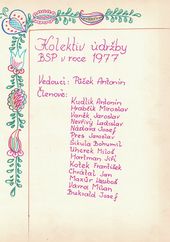 Kolektiv údržby
BSP v roce 1977
Vedoucí: Půček Antonín
Členové:
Kudlik Antonín
Hrabčík Miroslav
Vaněk Jaroslav
Nevřivý Ladislav
Náplava Josef
Pres Jaroslav
Sikula Bohumil
Uherek Miloš
Hartman Jiří
Kotek František
Chrástal Jan
Mazúr Ľudovít
Vávna Milan
Bukvald Josef